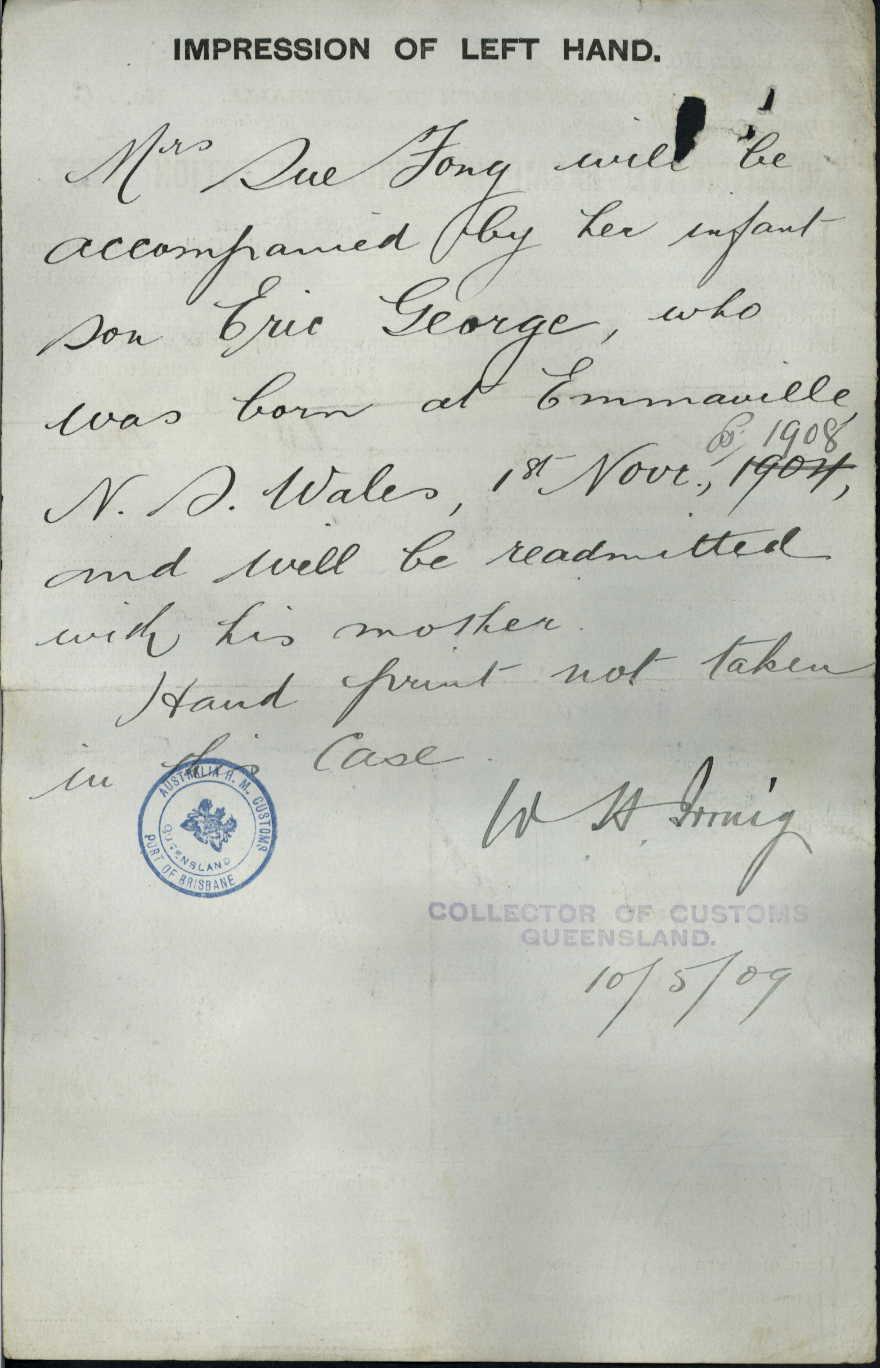 IMPRESSION OF LEFT HAND.
Mrs Sue Fong will be
accompanied by her infant
son Eric George, who
was born at Emmaville,
1908
N. S. Wales, 1st Novr., 1904,
and will be readmitted
with his mother.
Hand print not taken
in this Case.
W H Irving
AUSTRALIA H. M. CUSTOMS
QUEENSLAND
PORT OF BRISBANE
COLLECTOR OF CUSTOMS
QUEENSLAND.
10/5/09